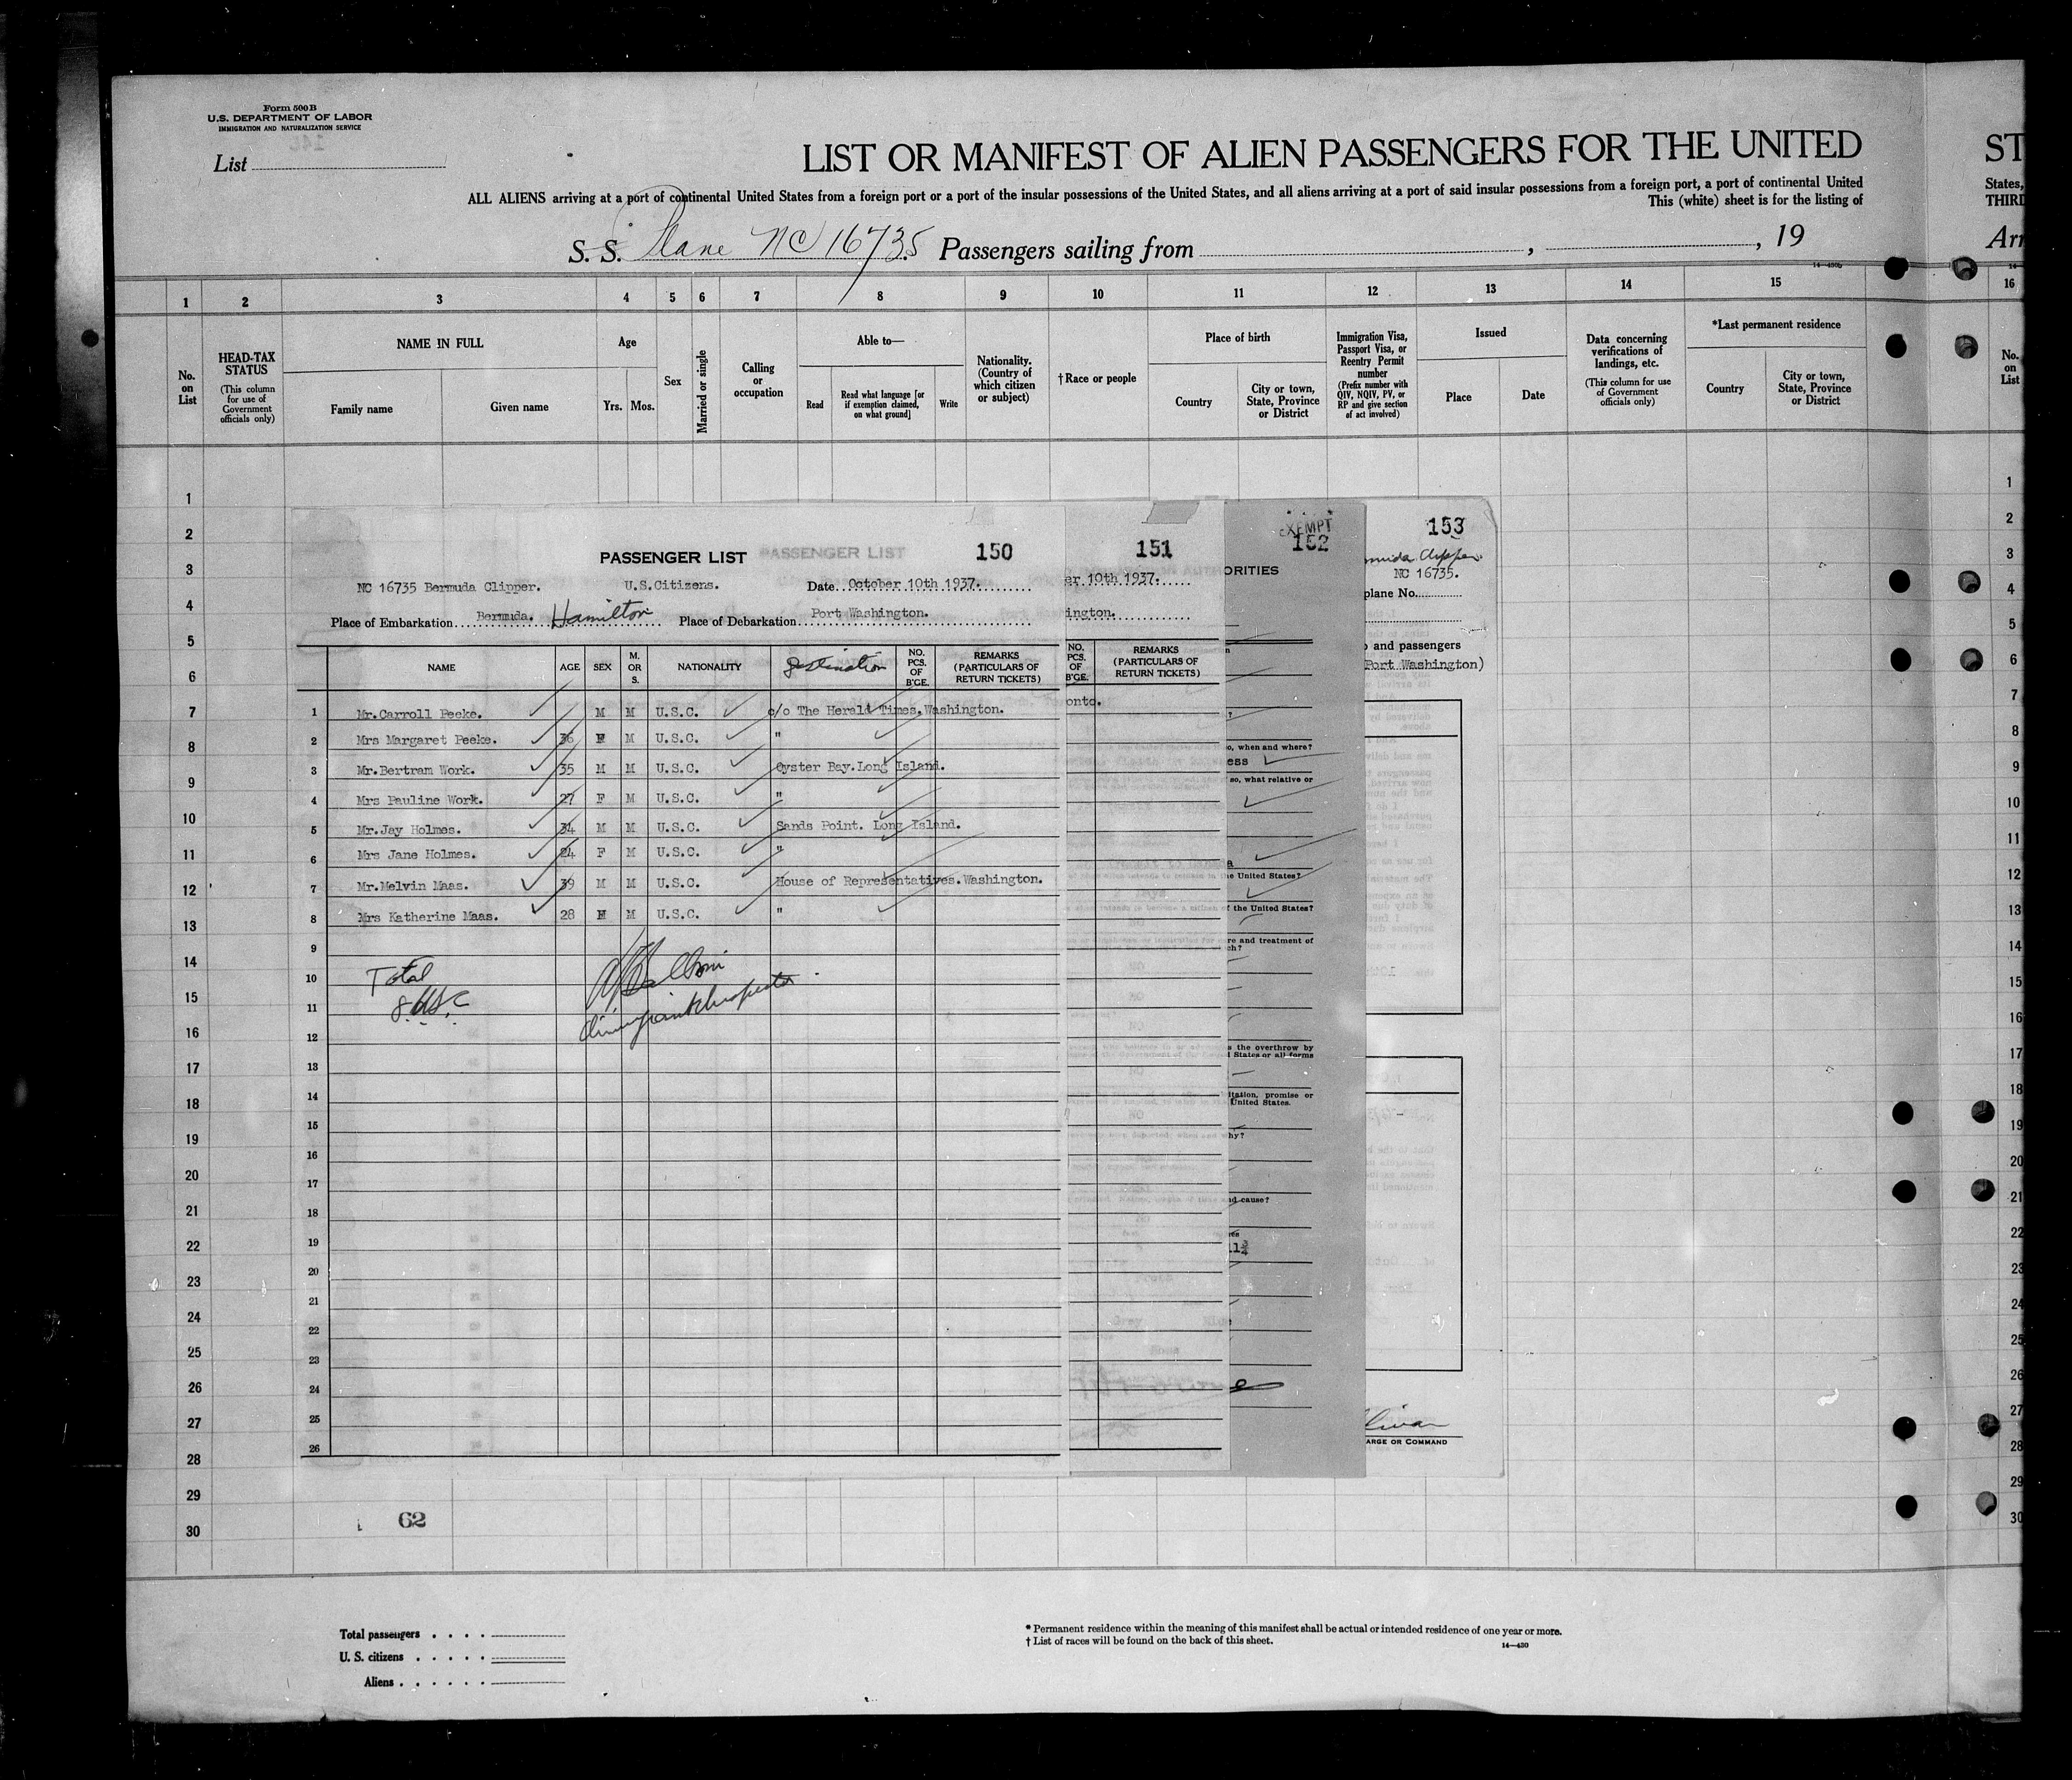 Form 500B
U.S. DEPARTMENT OF LABOR
IMMIGRATION AND NATURALIZATION SERVICE
List
LIST OR MANIFEST OF ALIEN PASSENGERS FOR THE UNITED
ST
ALL ALIENS arriving at a port of continental United States from a foreign port or a port of the insular possessions of the United States, and all aliens arriving at a port of said insular possessions from a foreign port, a port of continental United
States,
This (white) sheet is for the listing of
THIRD
S. S. Plane NC 16735 Passengers sailing from , , 19
Arr
14—430b
1 2 3 4 5 6 7 8 9 10 11 12 13 14 15 16
No. on List
HEAD-TAX STATUS
(This column for use of Government officials only)
NAME IN FULL
Family name
Given name
Age
Yrs. Mos.
Sex
Married or single
Calling or occupation
Able to—
Read
Read what language [or if exemption claimed, on what ground]
Write
Nationality. (Country of which citizen or subject)
†Race or people
Place of birth
Country
City or town, State, Province or District
Immigration Visa, Passport Visa, or Reentry Permit number
(Prefix number with QIV, NQIV, PV, or RP and give section of act involved)
Issued
Place
Date
Data concerning verifications of landings, etc.
(This column for use of Government officials only)
*Last permanent residence
Country
City or town, State, Province or District
No. on List
1
2
3
4
5
6
7
8
9
10
11
12
13
14
15
16
17
18
19
20
21
22
23
24
25
26
27
28
29
30
PASSENGER LIST
150
NC 16735 Bermuda Clipper. U.S.Citizens. Date October 10th 1937.
Place of Embarkation Bermuda. Hamilton Place of Debarkation Port Washington.
NAME AGE SEX M. OR S. NATIONALITY Destination NO. PCS. OF B'GE. REMARKS (PARTICULARS OF RETURN TICKETS)
1 Mr.Carroll Peeke. M M U.S.C. c/o The Herald Times.Washington.
2 Mrs Margaret Peeke. 36 F M U.S.C. "
3 Mr.Bertram Work. 35 M M U.S.C. Oyster Bay.Long Island.
4 Mrs Pauline Work. 27 F M U.S.C. "
5 Mr.Jay Holmes. 34 M M U.S.C. Sands Point. Long Island.
6 Mrs Jane Holmes. 24 F M U.S.C. "
7 Mr.Melvin Maas. 39 M M U.S.C. House of Representatives.Washington.
8 Mrs Katherine Maas. 28 F M U.S.C. "
9
10
11
12
13
14
15
16
17
18
19
20
21
22
23
24
25
26
Total
8 USC
151
er 10th 1937.
ington.
NO. PCS. OF B'GE.
REMARKS (PARTICULARS OF RETURN TICKETS)
onto.
EXEMPT
152
ORITIES
o, when and where?
ess
so, what relative or
he United States?
f the United States?
re and treatment of
ch?
s the overthrow by
d States or all forms
itation, promise or
United States.
hy?
nd cause?
153
muda Clipper
NC 16735.
plane No.
and passengers
Port Washington)
ARGE OR COMMAND
62
Total passengers
U. S. citizens
Aliens
* Permanent residence within the meaning of this manifest shall be actual or intended residence of one year or more.
† List of races will be found on the back of this sheet.
14—430